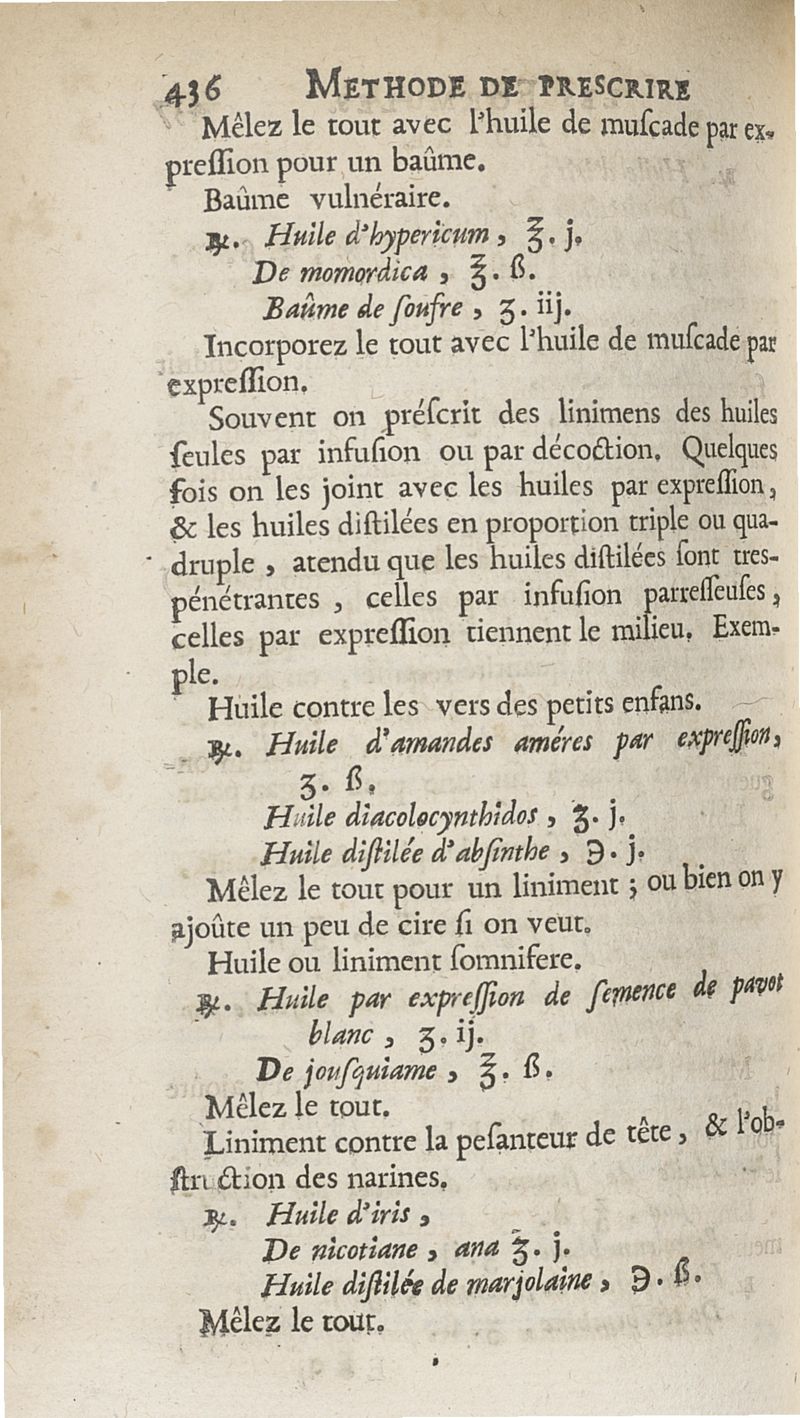 436 METHODE DE PRESCRIRE
Mêlez le tout avec l'huile de muſcade par ex-
preſſion pour un baûme.
Baûme vulnéraire.
℞. Huile d'hypericum, ℥. j.
De momordica, ℥. ß.
Baûme de ſoufre, ʒ. iij.
Incorporez le tout avec l'huile de muſcade par
expreſſion.
Souvent on préſcrit des linimens des huiles
ſeules par infuſion ou par décoction. Quelques
fois on les joint avec les huiles par expreſſion,
& les huiles diſtilées en proportion triple ou qua-
druple, atendu que les huiles diſtilées ſont tres-
pénétrantes, celles par infuſion parreſſeuſes,
celles par expreſſion tiennent le milieu. Exem-
ple.
Huile contre les vers des petits enfans.
℞. Huile d'amandes améres par expreſſion,
ʒ. ß.
Huile diacolocynthidos, ʒ. j.
Huile diſtilée d'abſinthe, ℈. j.
Mêlez le tout pour un liniment; ou bien on y
ajoûte un peu de cire ſi on veut.
Huile ou liniment ſomnifere.
℞. Huile par expreſſion de ſemence de pavot
blanc, ʒ. ij.
De jouſquiame, ℥. ß.
Mêlez le tout.
Liniment contre la peſanteur de tête, & l'ob-
ſtruction des narines.
℞. Huile d'iris,
De nicotiane, ana ʒ. j.
Huile diſtilée de marjolaine, ℈. ß.
Mêlez le tout.